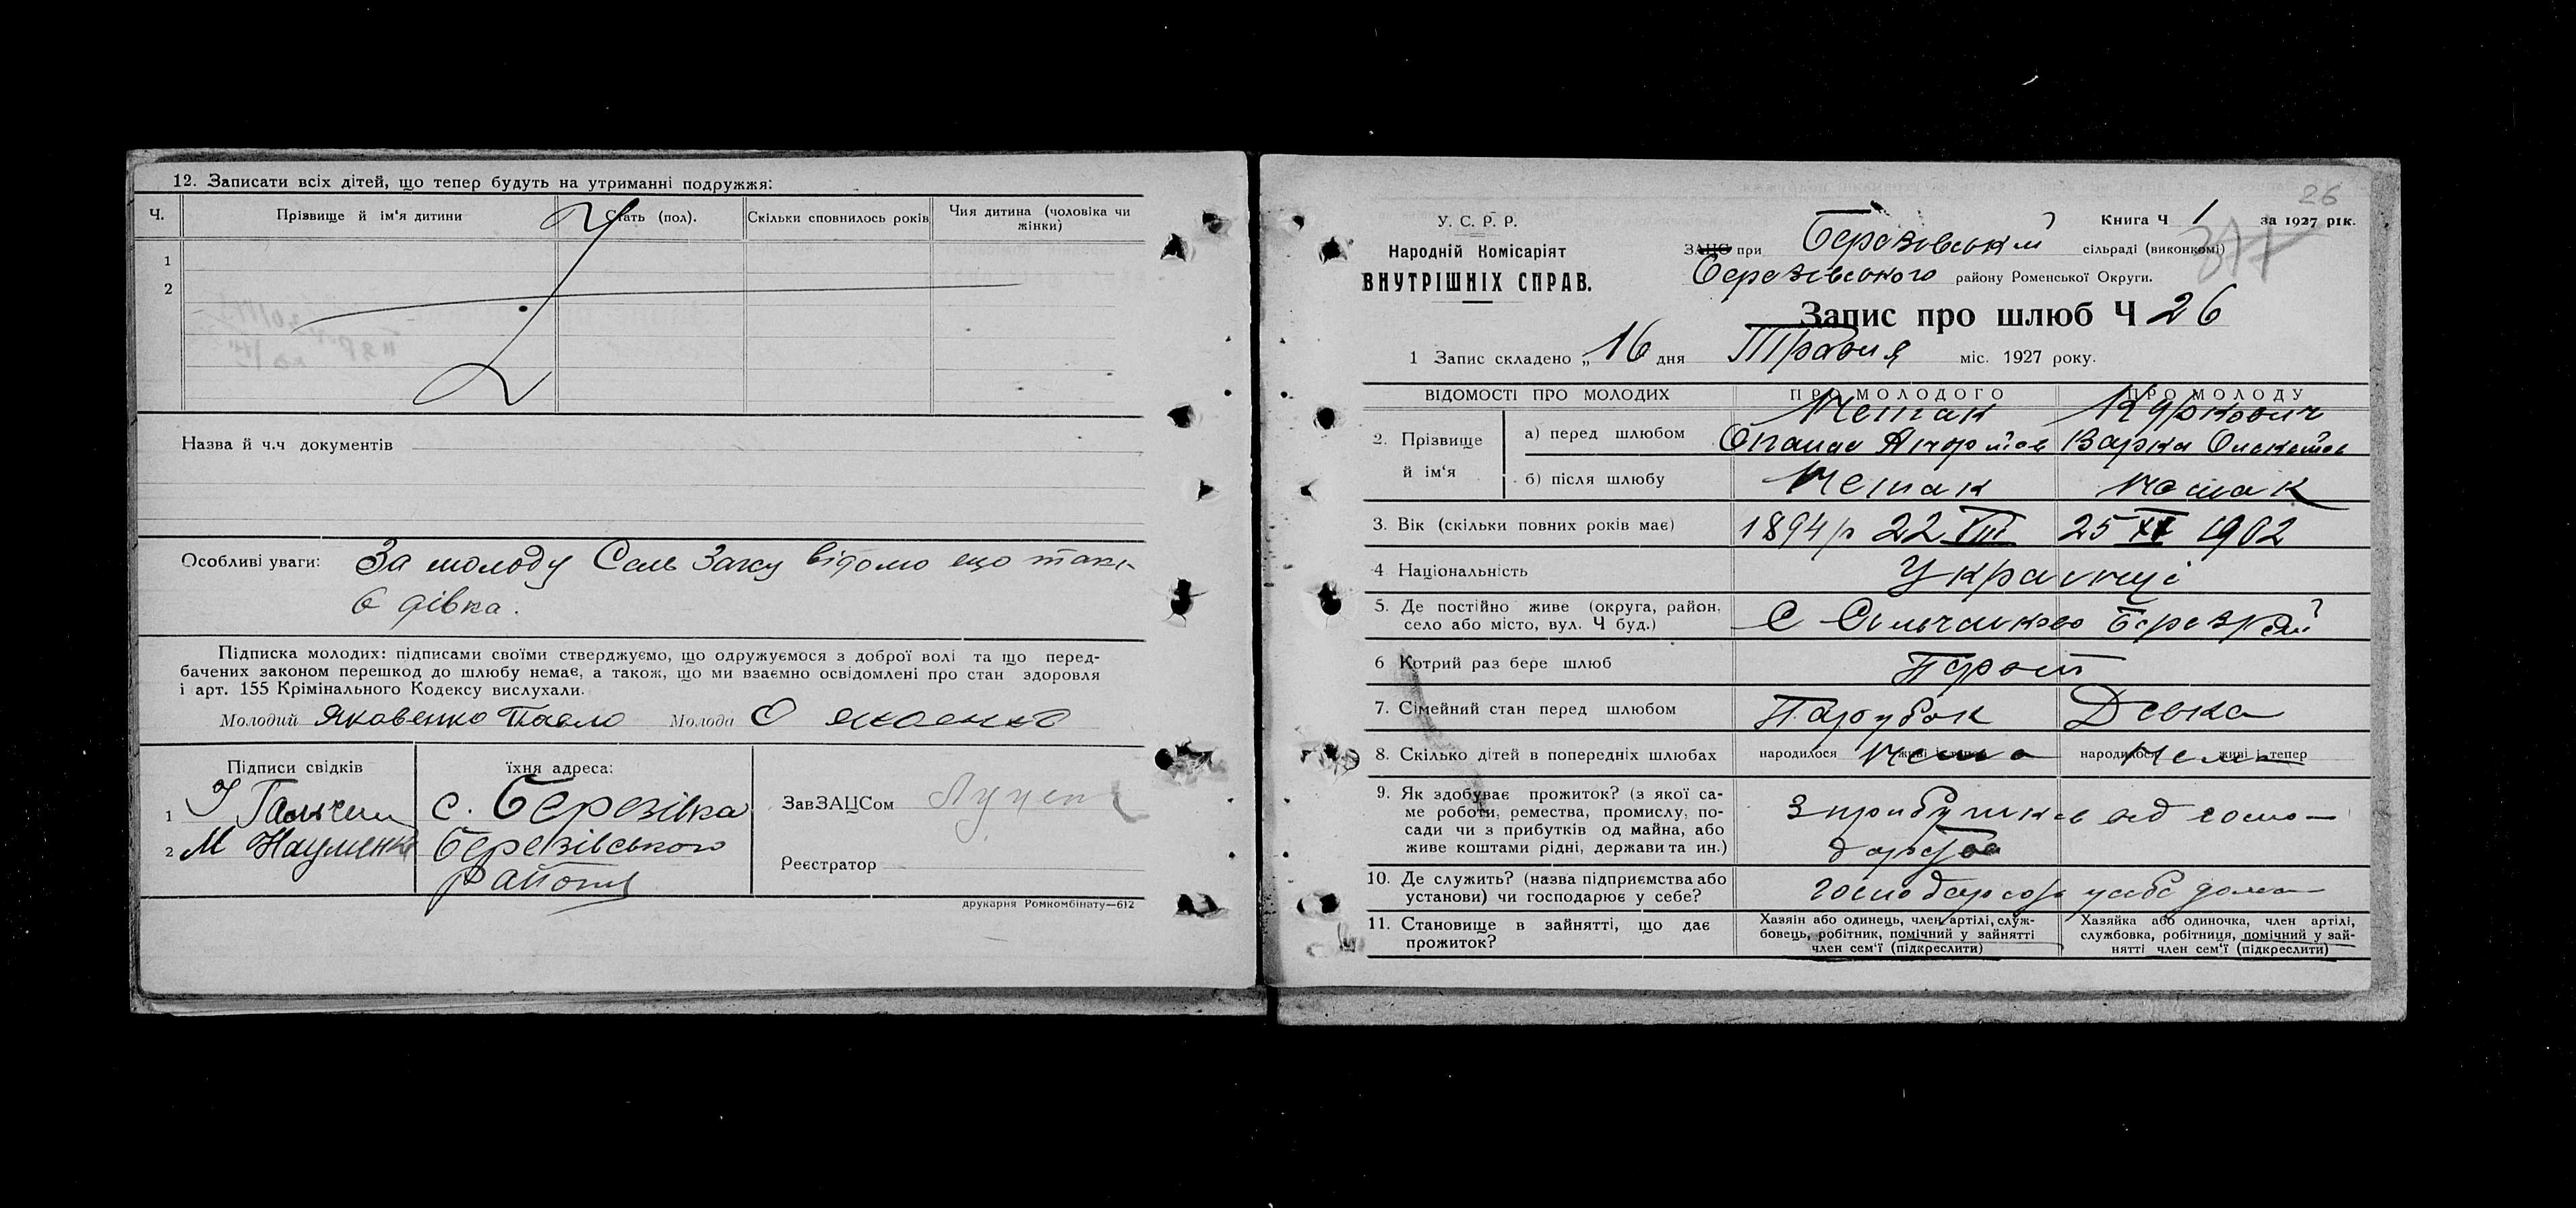 12. Записати всіх дітей, що тепер будуть на утриманні подружжя:
Ч. Прізвище й ім'я дитини Стать (пол). Скільки сповнилось років Чия дитина (чоловіка чи жінки)
1
2
Назва й ч.ч документів
Особливі уваги: За молоду Сель Загсу відомо що
є дівка.
Підписка молодих: підписами своїми стверджуємо, що одружуємося з доброї волі та що перед-
бачених законом перешкод до шлюбу немає, а також, що ми взаємно освідомлені про стан здоровля
і арт. 155 Крімінального Кодексу вислухали.
Молодий Яковенко Павло Молода О
Підписи свідків їхня адреса:
1 с. Березівка
2 М Науменко Березівського
району
ЗавЗАЦСом
Реєстратор
друкарня Ромкомбінату—612
26
У. С. Р. Р.
Народній Комісаріят
ВНУТРІШНІХ СПРАВ.
Книга Ч 1 за 1927 рік.
ЗАЦС при Березовській сільраді (виконкомі)
377
Березівського району Роменської Округи.
Запис про шлюб Ч 26
1 Запис складено „16 дня Травня міс. 1927 року.
ВІДОМОСТІ ПРО МОЛОДИХ ПРО МОЛОДОГО ПРО МОЛОДУ
2. Прізвище й ім'я
а) перед шлюбом
Опанас Варка
б) після шлюбу
3. Вік (скільки повних років має) 1894 р 22 VIII 25 1902
4 Національність Украінці
5. Де постійно живе (округа, район,
село або місто, вул. Ч буд.) С
6 Котрий раз бере шлюб
7. Сімейний стан перед шлюбом Парубок Девка
8. Скілько дітей в попередніх шлюбах народилося Нема живі і тепер народилося Нема живі і тепер
9. Як здобуває прожиток? (з якої са-
ме роботи, ремества, промислу, по-
сади чи з прибутків од майна, або
живе коштами рідні, держави та ин.)
З прибутків від госпо-
дарства
10. Де служить? (назва підприємства або
установи) чи господарює у себе?
11. Становище в зайнятті, що дає
прожиток?
Хазяїн або одинець, член артілі, служ-
бовець, робітник, помічний у зайнятті
член сем'ї (підкреслити)
Хазяйка або одиночка, член артілі,
службовка, робітниця, помічний у зай-
нятті член сем'ї (підкреслити)